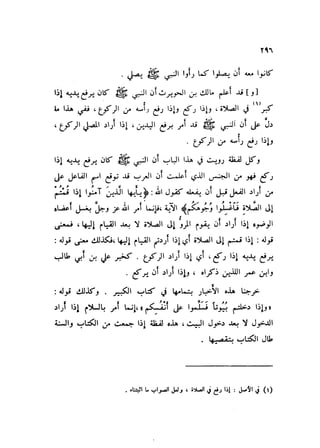 ٢٩٦
كانوا معه أن يصلوا كما رأوا النبي ﷺ يصلي .
[ و ] قد أعلم مالك بن الحويرث أن النبي ﷺ كان يرفع يديه إذا
كبر (١) في الصلاة ، وإذا ركع ، وإذا رفع رأسه من الركوع ، ففي هذا ما
دل على أن النبي ﷺ قد أمر برفع اليدين ، إذا أراد المصلي الركوع ،
وإذا رفع رأسه من الركوع .
وكل لفظة رويت في هذا الباب أن النبي ﷺ كان يرفع يديه إذا
ركع فهو من الجنس الذي أعلمت أن العرب قد توقع اسم الفاعل على
من أراد الفعل قبل أن يفعله كقول الله : ﴿ يا أيها الذين آمنوا إذا قمتم
إلى الصلاة فاغسلوا وجوهكم ﴾ الآية ، فإنما أمر الله عز وجل بغسل أعضاء
الوضوء إذا أراد أن يقوم المرء إلى الصلاة لا بعد القيام إليها ، فمعنى
قوله : إذا قمتم إلى الصلاة أي إذا أردتم القيام إليها ، فكذلك معنى قوله :
يرفع يديه إذا ركع ، أي إذا أراد الركوع ، كخبر علي بن أبي طالب
وابن عمر اللذين ذكراه ، وإذا أراد أن يركع .
خرجت هذه الأخبار بتمامها في كتاب الكبير . وكذلك قوله :
« وإذا خطبتم فأنتوا ... على أنفسكم » ، وإنما ... بالسلام إذا أراد
الدخول لا بعد دخول البيت ، هذه لفظة إذا جمعت من الكتاب والسنة
لطال الكتاب بتقصيها .
(١) في الأصل : إذا ركع في الصلاة ، ولعل الصواب ما أثبتناه .